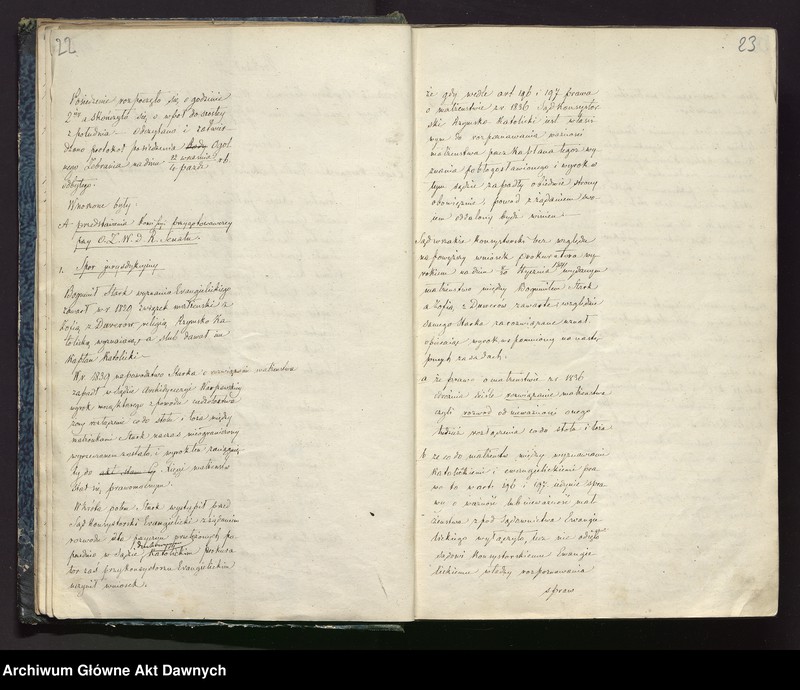 22
Posiedzenie rozpoczęło się o godzinie
2giej a skończyło się o wpół do szóstej
z południa – odczytano i zatwier
dzono protokół posiedzenia Ogól
nego Zebrania na dniu 22 września / 4 paźdz r.b.
odbytego.
Wnoszone były:
A. przedstawienia Komisyi przygotowawczej
przy O. Z. W. D. R. Senatu.
1. Spór jurysdykcyjny
Bogumił Stark wyznania Ewangelickiego
zawarł w r. 1829 związek małżeński z
Zofią z Dawerów, religią Rzymsko Ka
tolicką wyznawającą a ślub dawał im
Kapłan Katolicki –
W r. 1839 na powództwo Starka o rozwiązanie małżeństwa
zapadł w Sądzie Archidyecezyi Warszawskiej
wyrok mocą którego z powodu cudzołóstwa
żony rozłączenie co do stołu i łoża między
małżonkami Stark na czas nieograniczony
wyrzeczonem zostało, i wyrok ten zaciągnię
ty do księgi małżeństw
stał się prawomocnym.
Wkrótce potem Stark wystąpił przed
Sąd Konsystorski Ewangelicki z żądaniem
rozwodu dla przyczyn powziętych po
przednio w Sądzie Katolickim Prokura
tor zaś przy Konsystorzu Ewangelickim
uczynił wniosek.
23
że gdy wedle art 196 i 197 prawa
o małżeństwie z r. 1836 Sąd Konsystor
ski Rzymsko Katolicki jest właści
wym do rozpoznawania ważności
małżeństwa przez Kapłana tegoż wy
znania pobłogosławionego i wyrok w
tym sądzie zapadły obiedwie strony
obowiązuje, powód z żądaniem swo
jem oddalony być winien –
Sąd wszakże Konsystorski bez względu
na powyższy wniosek prokuratora wy
rokiem na dniu Stycznia 1841 wydanym
małżeństwo między Bogumiłem Stark
a Zofią z Dawerów zawarte, względnie
samego Starka za rozwiązane uznał
opierając wyrok wspomniony na nastę
pnych zasadach.
a że prawo o małżeństwie z r. 1836
odróżnia ściśle rozwiązanie małżeństwa
czyli rozwód od nieważności onego
tudzież rozłączenia co do stołu i łoża
b że co do małżeństw między wyznawcami
Katolickiemi i ewangelickiemi pra
wo to w art. 196 i 197 jedynie spra
wy o ważność lub nieważność mał
żeństwa z pod Sądownictwa Ewange
lickiego wyłączyło, lecz nie odjęło
Sądowi Konsystorskiemu Ewange
lickiemu władzy rozpoznawania
spraw
Archiwum Główne Akt Dawnych